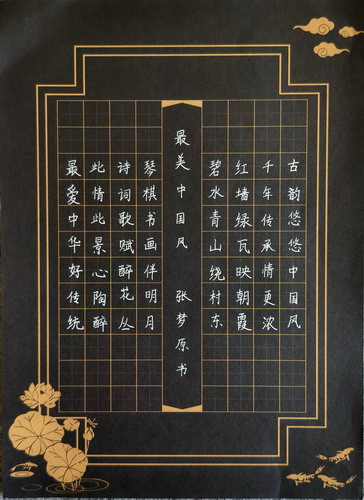 古韵悠悠中国风
千年传承情更浓
红墙绿瓦映朝霞
碧水青山绕村东
最美中国风 张梦原书
琴棋书画伴明月
诗词歌赋醉花丛
此情此景心陶醉
最爱中华好传统